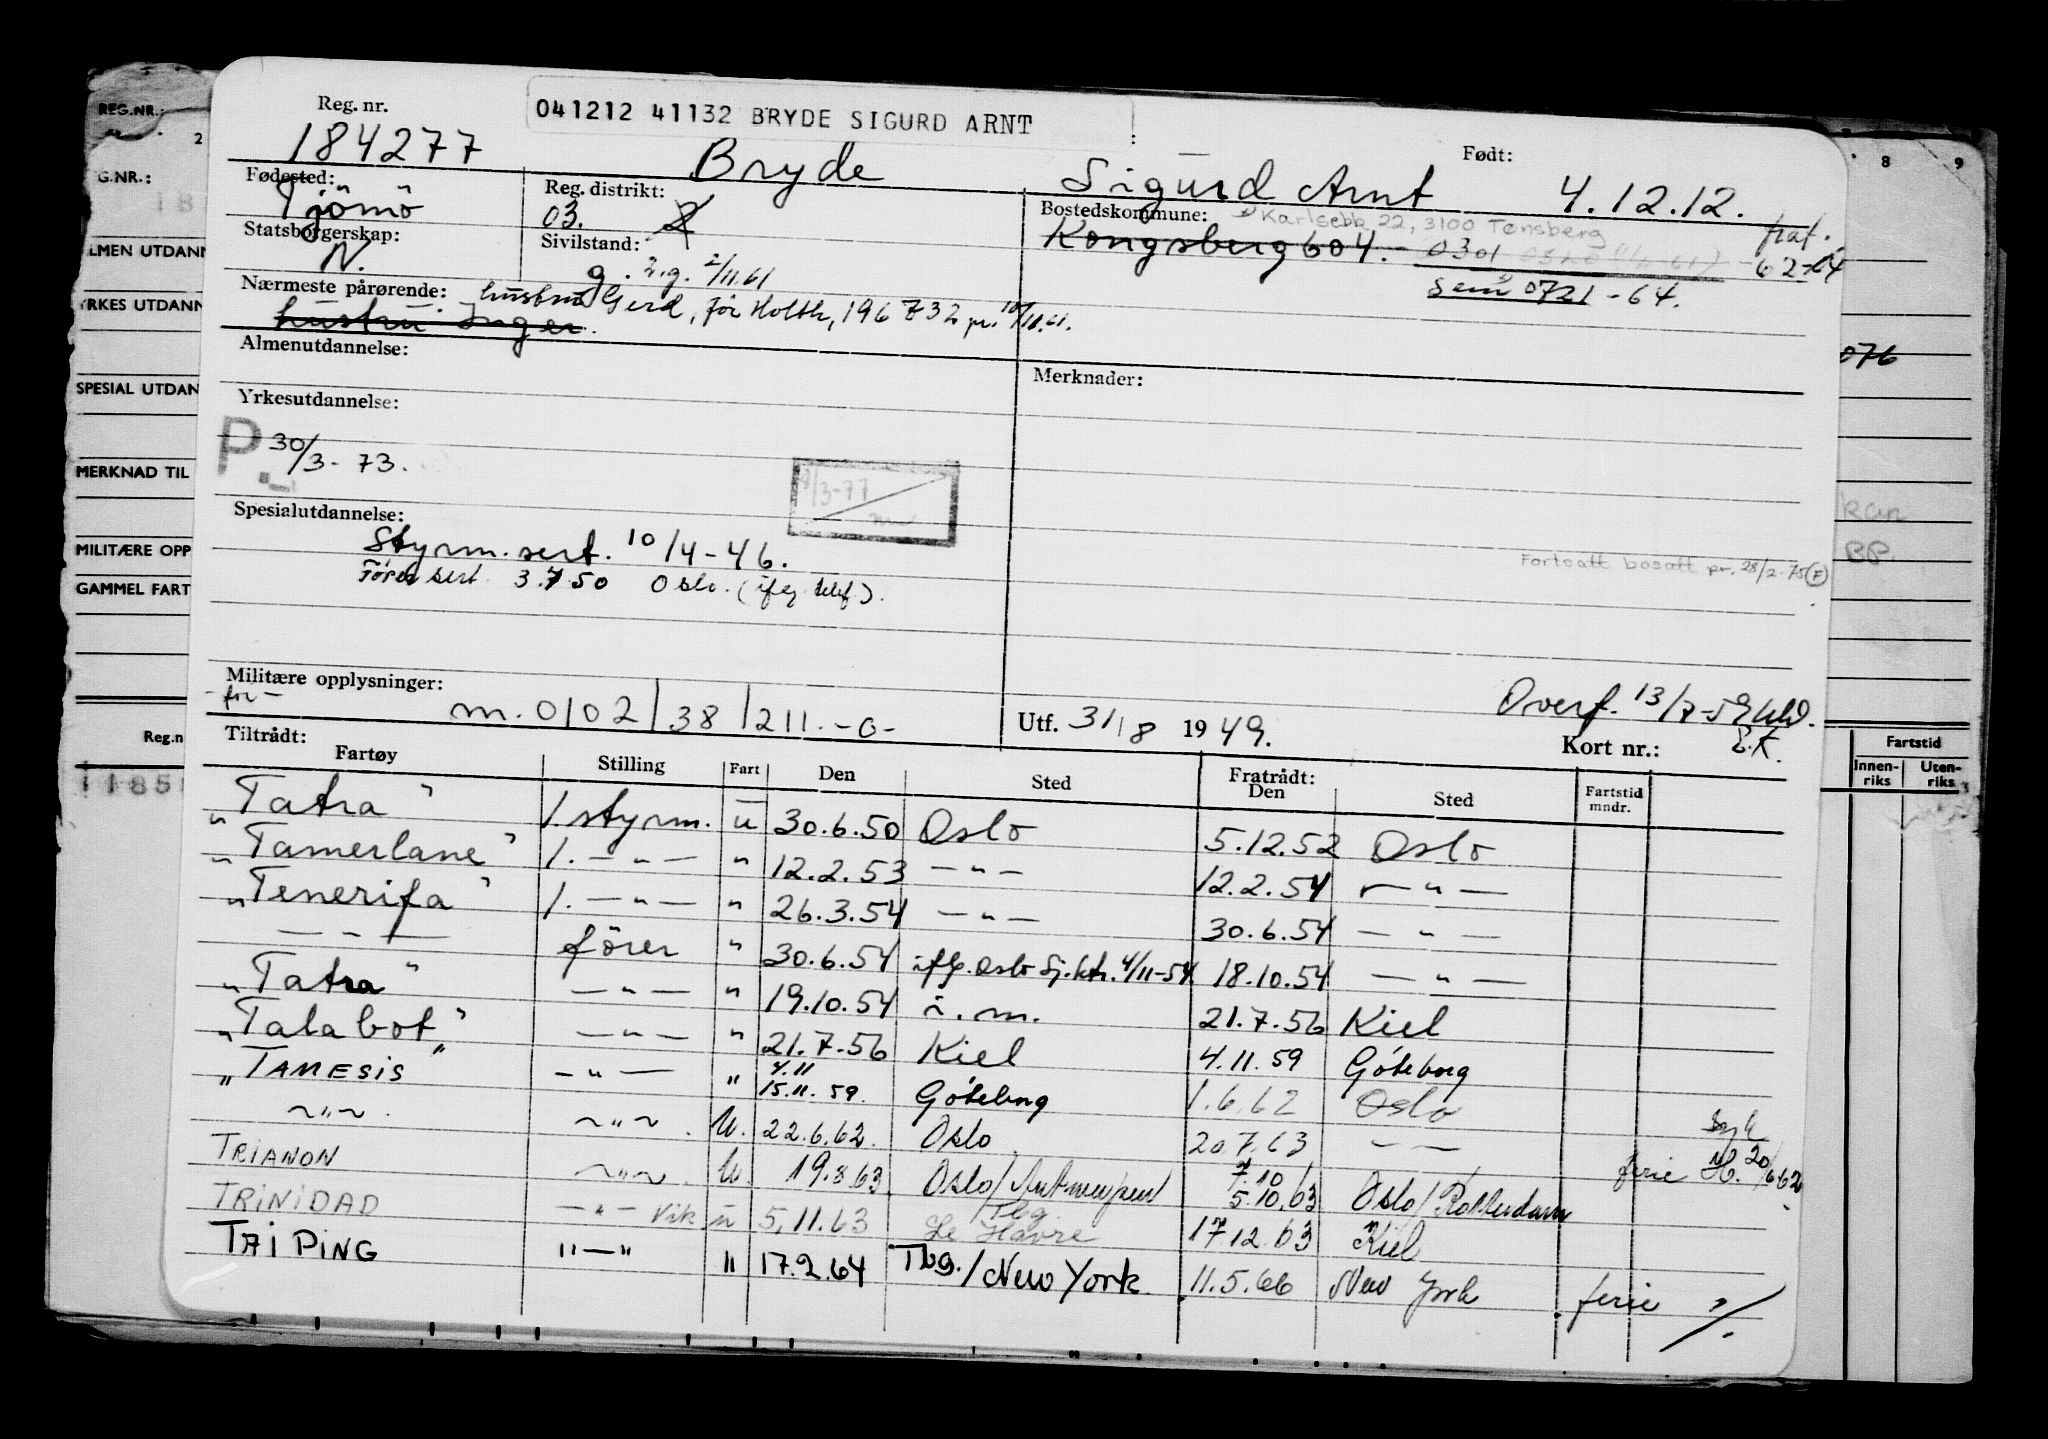 041212 41132 BRYDE SIGURD ARNT
Reg. nr. 184277 Bryde Sigurd Arnt Født: 4.12.12.
Fødested: Tjömö Reg. distrikt: 03. Bostedskommune: Karlsebb 22, 3100 Tønsberg
Kongsberg 604. - 0301 fraf. 62-64
Sem 0721 - 64.
Statsborgerskap: N. Sivilstand: g. 2.g. 2/11.61
Nærmeste pårørende: hustru Gerd, før Holth, 196732 pr. 10/11.61.
hustru Inger.
Almenutdannelse:
Merknader:
Yrkesutdannelse:
P. 30/3-73.
8/3-77
Spesialutdannelse:
Styrm. sert. 10/4-46.
Förersert. 3.7 50 Oslo. (ifg. telef).
Fortsatt bosatt pr. 28/2-75 (F)
Militære opplysninger:
- för - m. 0102/38/211.-0- Utf. 31/8 1949. Overf. 13/7-59
Kort nr.:
Tiltrådt: Fratrådt:
Fartøy Stilling Fart Den Sted Den Sted Fartstid mndr.
"Tatra" 1. styrm. u 30.6.50 Oslo 5.12.52 Oslo
"Tamerlane" 1. — " — " 12.2.53 — " — 12.2.54 — " —
"Tenerifa" 1. — " — " 26.3.54 — " — 30.6.54 — " —
— " — förer " 30.6.54 iflg. Oslo Sj.ktr. 4/11-54 18.10.54 — " —
"Tatra" — " — " 19.10.54 i. m. 21.7.56 Kiel
"Talabot" — " — " 21.7.56 Kiel 4.11 59 Göteborg
"TAMESIS" — " — " 4.11 15.11. 59. Göteborg 1.6.62 Oslo
~ " ~ . ~ " ~ . U. 22.6.62. Oslo 20.7.63 — — ferie H. 20/6 62
TRIANON ~ " ~ . U. 19.8.63. Oslo/Antwerpen 7.10 5.10.63 Oslo/Rotterdam
TRINIDAD — " — Vik u 5.11.63 Tbg Le Havre 17.12.63 Kiel
TAI PING " — " " 17.2.64 Tbg./New York. 11.5.66 New York ferie
REG.NR.:
2
8 9
G.NR.:
LMEN UTDANN
YRKES UTDANN
SPESIAL UTDAN
MERKNAD TIL
MILITÆRE OPP
GAMMEL FART
Reg.n
1185
076
BP.
Fartstid
Innen-riks Uten-riks